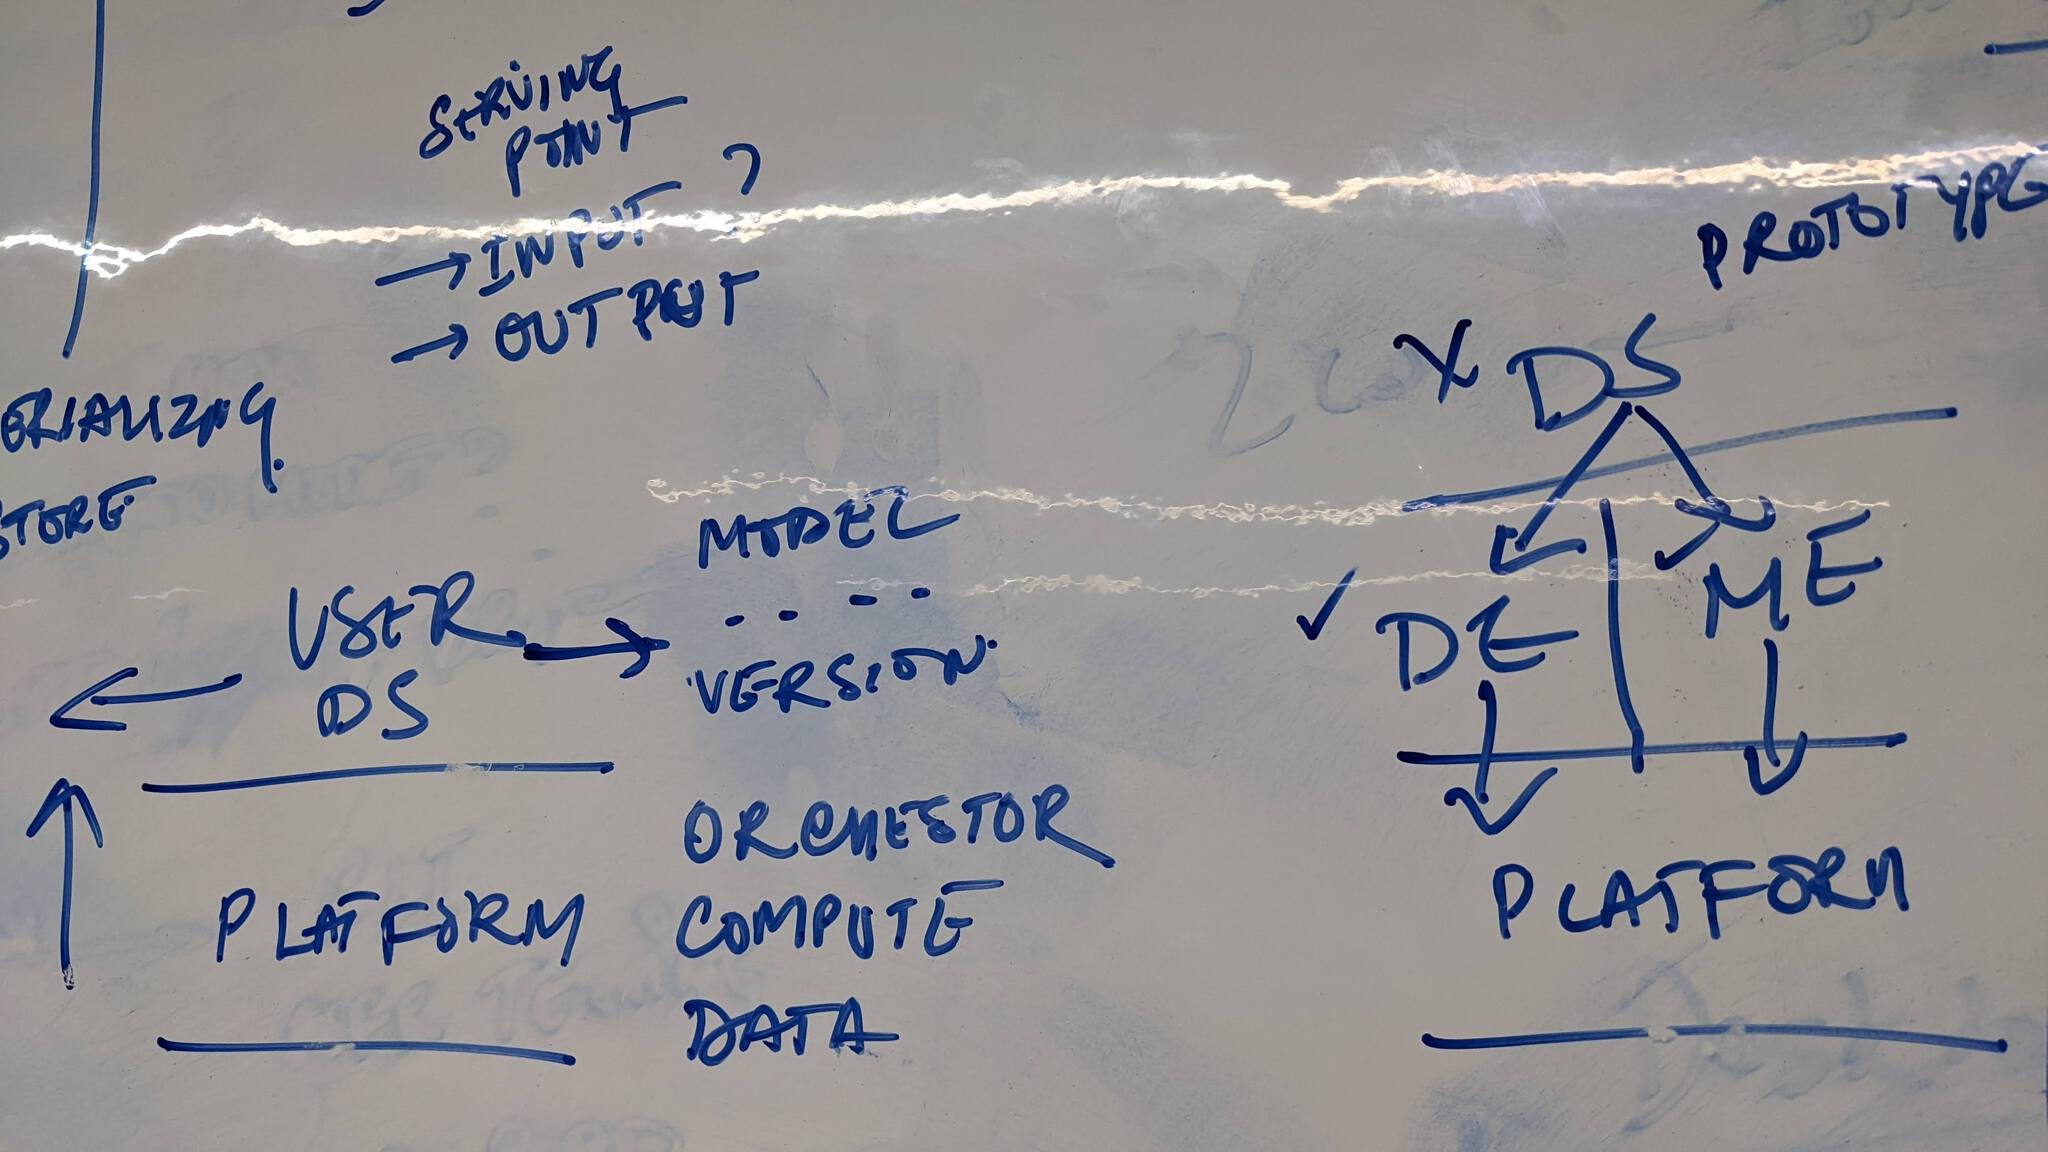 SERVING
POINT
→ INPUT ?
→ OUTPUT
ERIALIZING
STORE
USER → MODEL
DS
.. --
VERSION
PLATFORM
ORCHESTOR
COMPUTE
DATA
PROTOTYPE
X DS
✓ DE
ME
PLATFORM